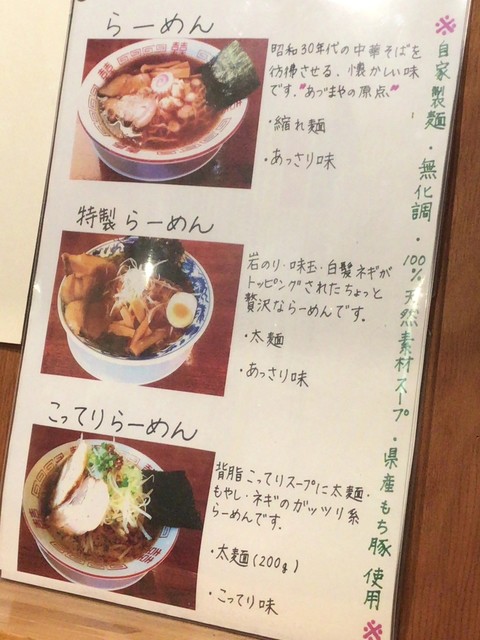 らーめん
昭和30年代の中華そばを
彷彿させる、懐かしい味
です。"あづまやの原点"
・縮れ麺
・あっさり味
特製らーめん
岩のり・味玉・白髪ネギが
トッピングされたちょっと
贅沢ならーめんです。
・太麺
・あっさり味
こってりらーめん
背脂こってりスープに太麺・
もやし・ネギのガッツリ系
らーめんです。
・太麺(200g)
・こってり味
※自家製麺・無化調・100%天然素材スープ・県産もち豚使用※